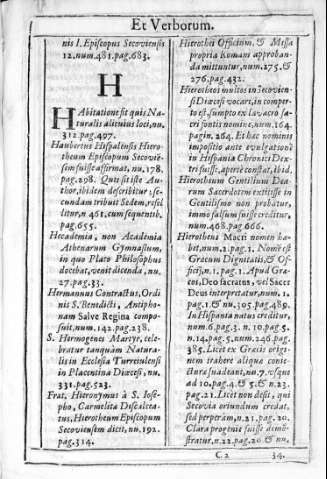 Et Verborum.
nis I. Episcopus Secoviensis
12. num.481. pag.683.
H
HAbitatione sit quis Na-
turalis alicuius loci, nu.
312. pag.497.
Haubertus Hispalensis Hiero-
theum Episcopum Secovië-
sim fuisse affirmat, nu. 178.
pag.298. Quis sit iste Au-
thor, ibidem describitur: se-
cundam tribuit Sedem, refel
litur, n 461. cum sequentib.
pag.655.
Hecademia, non Academia
Athenarum Gymnasium,
in quo Plato Philosophus
docebat, venit dicenda, nu.
27. pag.33.
Hermannus Contractus, Ordi
nis S. Benedicti, Antipho-
nam Salve Regina compo-
suit, num.142. pag.238.
S. Hermogenes Martyr, cele-
bratur tanquàm Natura-
lis in Ecclesia Turreulensi
in Placentina Diœcesi, nu.
331. pag.523.
Frat. Hieronymus à S. Iose-
pho, Carmelita Discalcea-
tus, Hierotheum Episcopum
Secoviensem dicit, nu.192.
pag.314.
Hierothei Officium, & Missa
propria Romani approban-
da mittuntur, num.275. &
276. pag.432.
Hierotheos multos in Secovien-
si Diœcesi vocari, in comper-
to est, sumpto ex lavacro sa-
cri fontis nomine, num.164.
pagin.264. Et hac nominis
impositio ante evulgationē
in Hispania Chronici Dex-
tri fuisse, apertè constat, ibid.
Hierotheum Gentilium Dea-
rum Sacerdotem extitisse in
Gentilismo non probatur,
immo falsum fuisse creditur,
num.468. pag 666.
Hierotheus Mocti nomen ha-
buit, num.2. pag.1. Nomē est
Græcum Dignitatis, & Of-
ficij, n.1. pag.1. Apud Græ-
cos, Deo sacratus, vel Sacer
Deus interpretatur, num.1.
pag.1. & nu.305. pag.489.
In Hispania natus creditur,
num.6. pag.3. n.10. pag.5.
n.14. pag.5. num.246. pag.
385. Licet ex Græcis origi-
nem trahere aliqua conie-
ctura suadeant, nu.7. vsque
ad 10. pag.4. & 5. & n.23.
pag.21. Licet non desit, qui
Secovia oriundum credat,
sed perperàm, n.21. pag.20.
Clara progenie fuisse demō-
stratur, n.22. pag.20 & nu.
C 2
34.